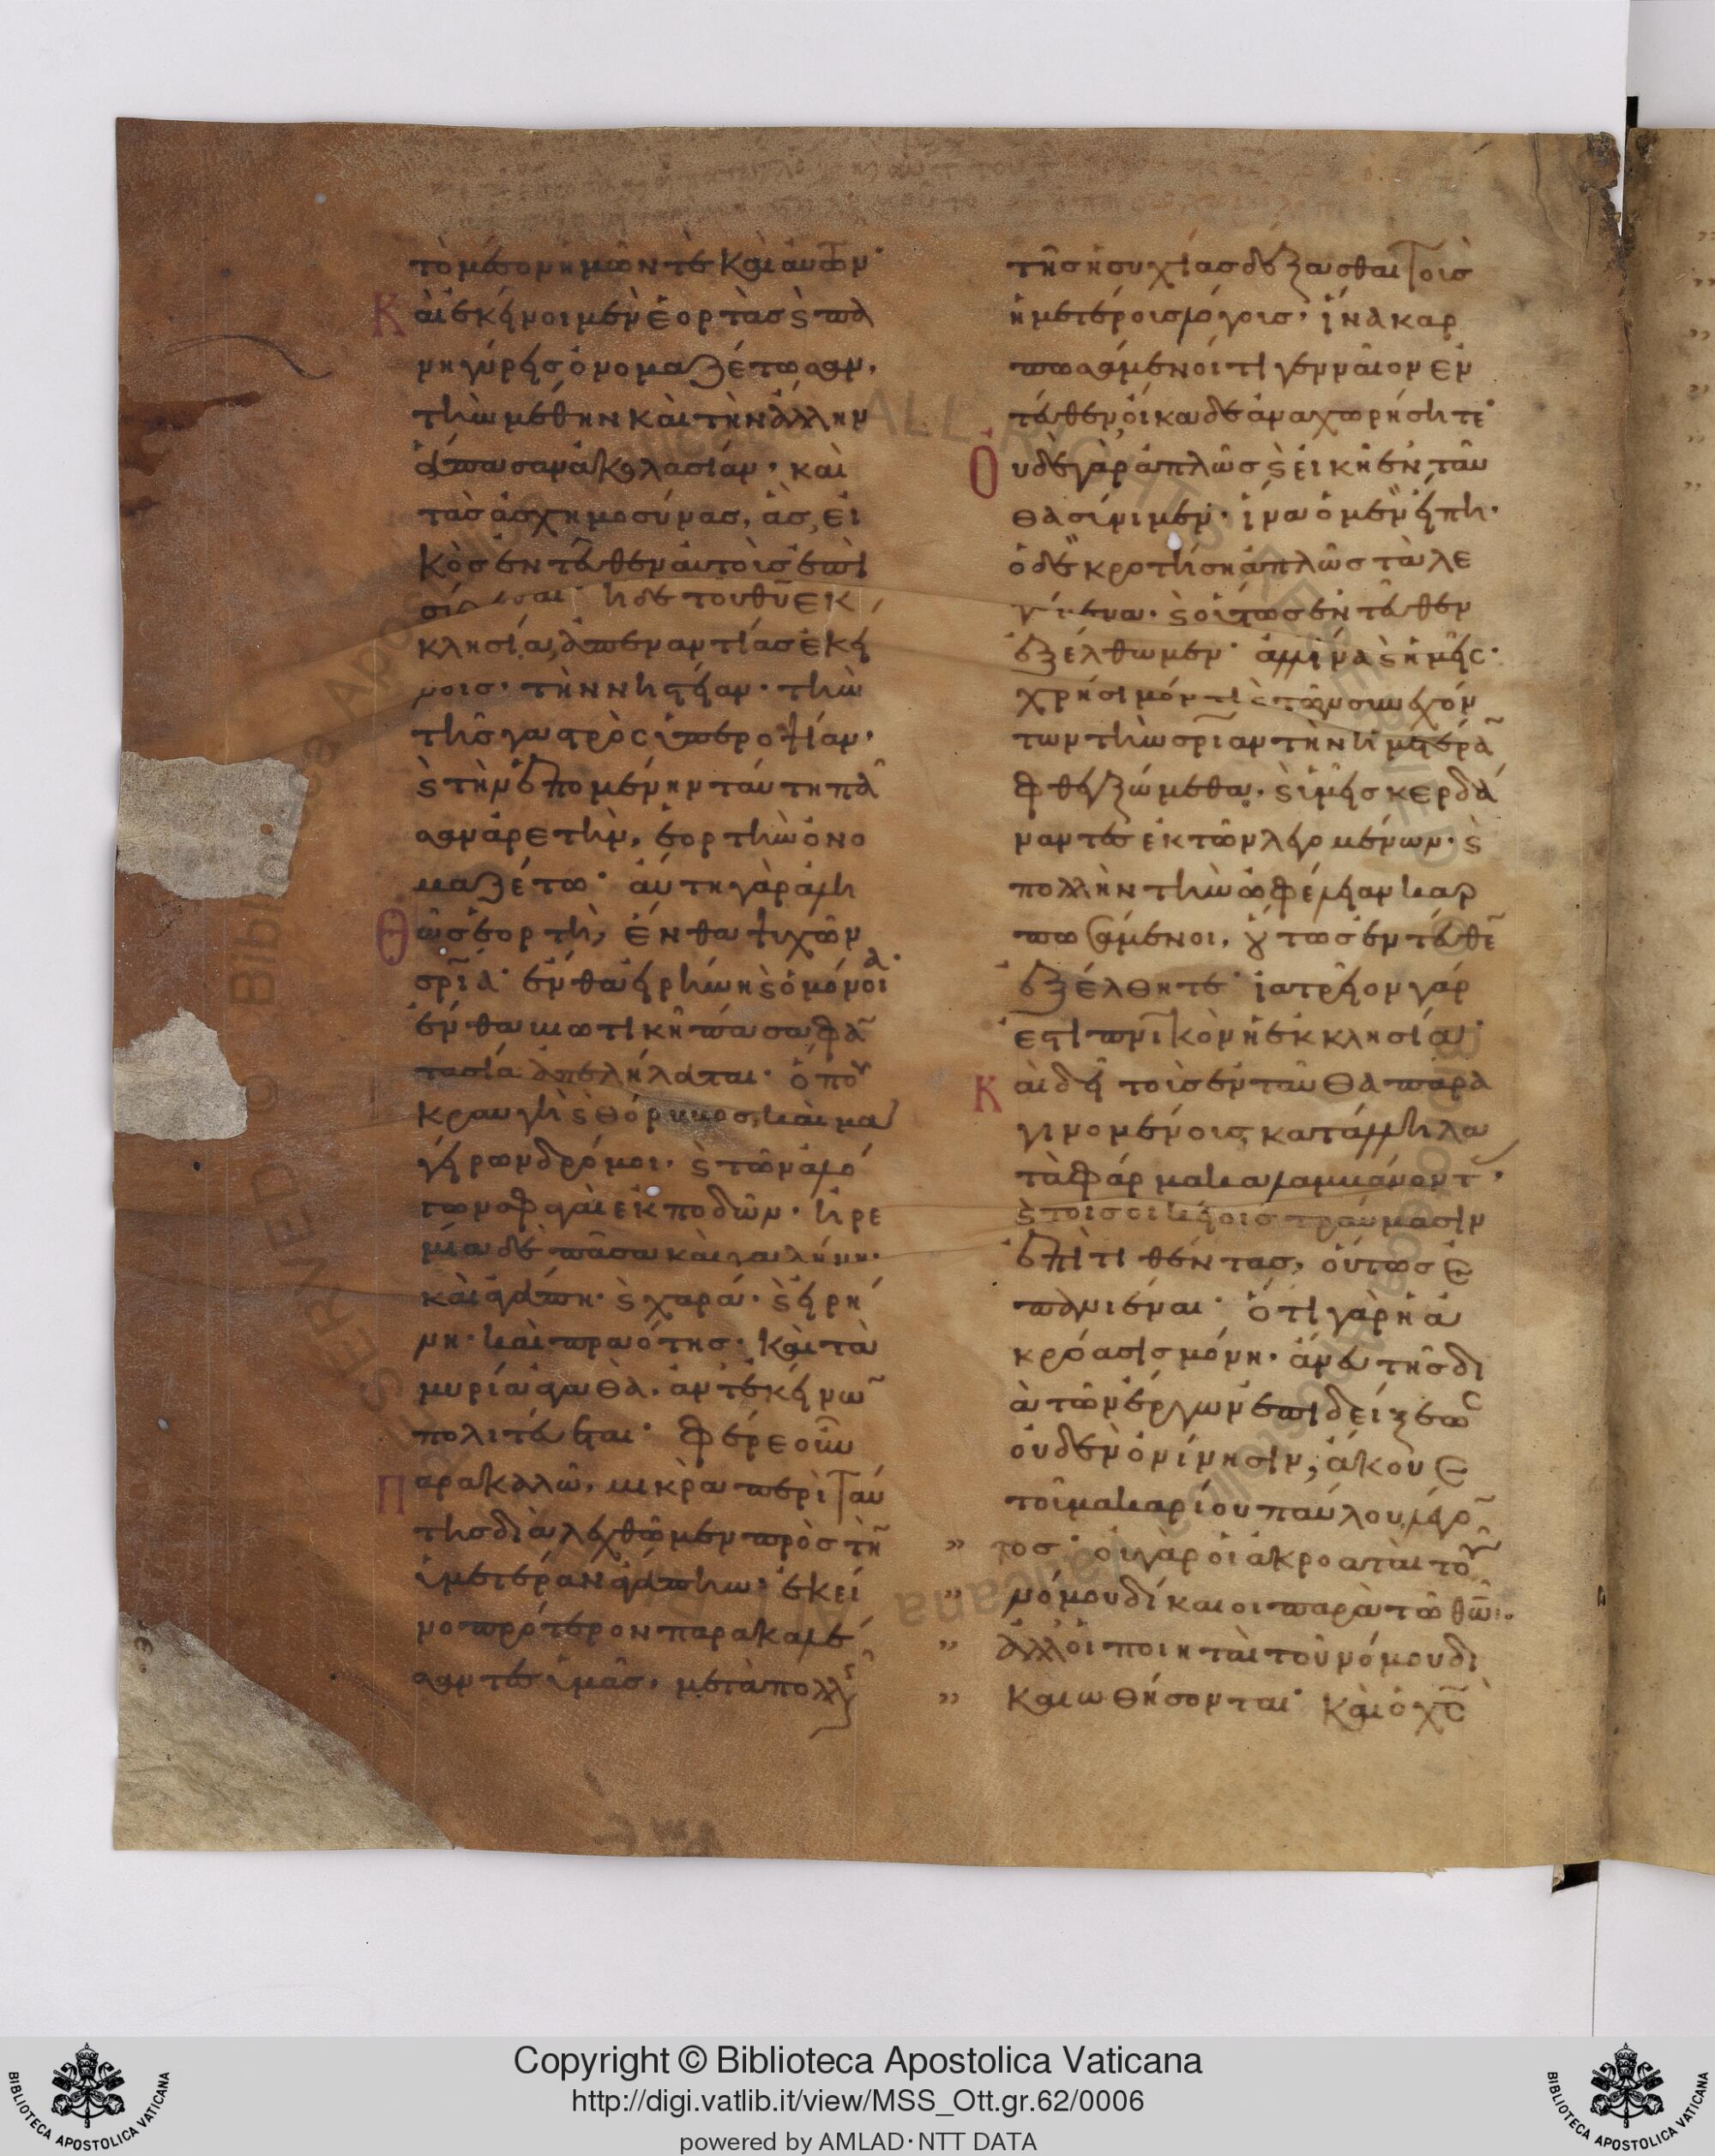 τὸ μέσον ἡμῶν τε καὶ αὐτῶν·
Καἰκεῖνοι μὲν ἑορτὰς ϗ πα
νηγύρεις ὀνομαζέτωσαν,
τὴν μέθην καὶ τὴν ἄλλην
ἅπασαν ἀκολασίαν· καὶ
τὰς ἀσχημοσύνας, ἃς εἰ
κὸς ἐντεῦθεν αὐτοὶς ἐπι
ἡ δὲ τοῦ θῦ ἐκ
κλησία, ἀπεναντίας ἐκεί
νοις· τὴν νηστείαν· τὴν
τῆς γαστρὸς ὑπεροψίαν·
ϗ τὴν ἑπομένην ταύτη πᾶ
σαν ἀρετὴν, ἑορτὴν ὀνο
μαζέτω· αὕτη γὰρ ἀλη
Θῶς ἑορτὴ, ἔνθα ψυχῶν
σρῖα· ἔνθα εἰρήνη ϗ ὁμόνοια·
ἔνθα βιωτικὴ πᾶσα φα̃
τασία ἀπελήλαται· ὅπου
κραυγὴ ϗ θόρυβος, καὶ μα
γείρων δρόμοι· ϗ τῶν ἀλό
γων σφαγαὶ ἐκποδῶν· ἠρε
μία δὲ πᾶσα καὶ γαλήνη·
καὶ ἀγάπη· ϗ χαρά· ϗ εἰρή
νη· καὶ πραότης· καὶ τὰ
μυρία ἀγαθὰ, ἀντ' ἐκείνω̃
πολιτεύεται· φέρε οὖν
Παρακαλῶ, μικρὰ περὶ ταύ
της διαλεχθῶμεν πρὸς τὴ̃
ὑμετέραν ἀγάπην· ἐκεῖ
νο πρότερον παρακαλέ
σαντες ὑμᾶς, μετὰ πολλῆς
τῆς ἡσυχίας δέξασθαι τοῖς
ἡμετέροις λόγοις· ἵνα καρ
πωσάμενοί τι γενναῖον ἐν
τεῦθεν, οἴκαδε ἀναχωρήσητε·
Οὐδὲ γὰρ ἁπλῶς ϗ εἰκῆ ἐνταῦ
θα σύνιμεν· ἵνα ὁ μὲν εἴπη·
ὁ δὲ κροτήση ἁπλῶς τὰ λε
γόμενα· ϗ οὕτως ἐντεῦθεν
ἐξέλθωμεν· ἀλλ' ἵνα ϗ ἡμεῖς·
χρήσιμόν τι ϗ τῶν συνεχόν
των τὴν σρῖαν τὴν ἡμετέρα̃
φθεγξώμεθα, ϗ ὑμεῖς κερδά
ναντες ἐκ τῶν λεγομένων· ϗ
πολλὴν τὴν ὠφέλειαν καρ
πωσάμενοι, οὕτως ἐντεῦθε̃
ἐξέλθητε· ἰατρεῖον γάρ
ἐστι πνῖκὸν ἡ ἐκκλησία·
Καὶ δεῖ τοὶς ἐνταῦθα παρα
γινομένοις, κατάλληλα
τὰ φάρμακα λαμβάνοντ·
ϗ τοῖς οἰκείοις τραύμασιν
ἐπιτιθέντας, οὕτως ἐ
πανιέναι· ὅτι γὰρ ἡ ἀ
κρόασις μόνη· ἄνευ τῆς δι
ὰ τῶν ἔργων ἐπιδείξεως
οὐδὲν ὀνίνησιν, ἄκουε
τοῦ μακαρίου παύλου λέγο̃
» τος· οὐ γὰρ οἱ ἀκροαταὶ τοῦ
» νόμου δίκαιοι παρὰ τῶ θῶ·
» ἀλλ' οἱ ποιηταὶ τοῦ νόμου δι
» καιωθήσονται· καὶ ὁ χς̃
Copyright © Biblioteca Apostolica Vaticana
http://digi.vatlib.it/view/MSS_Ott.gr.62/0006
powered by AMLAD·NTT DATA
BIBLIOTECA APOSTOLICA VATICANA
BIBLIOTECA APOSTOLICA VATICANA